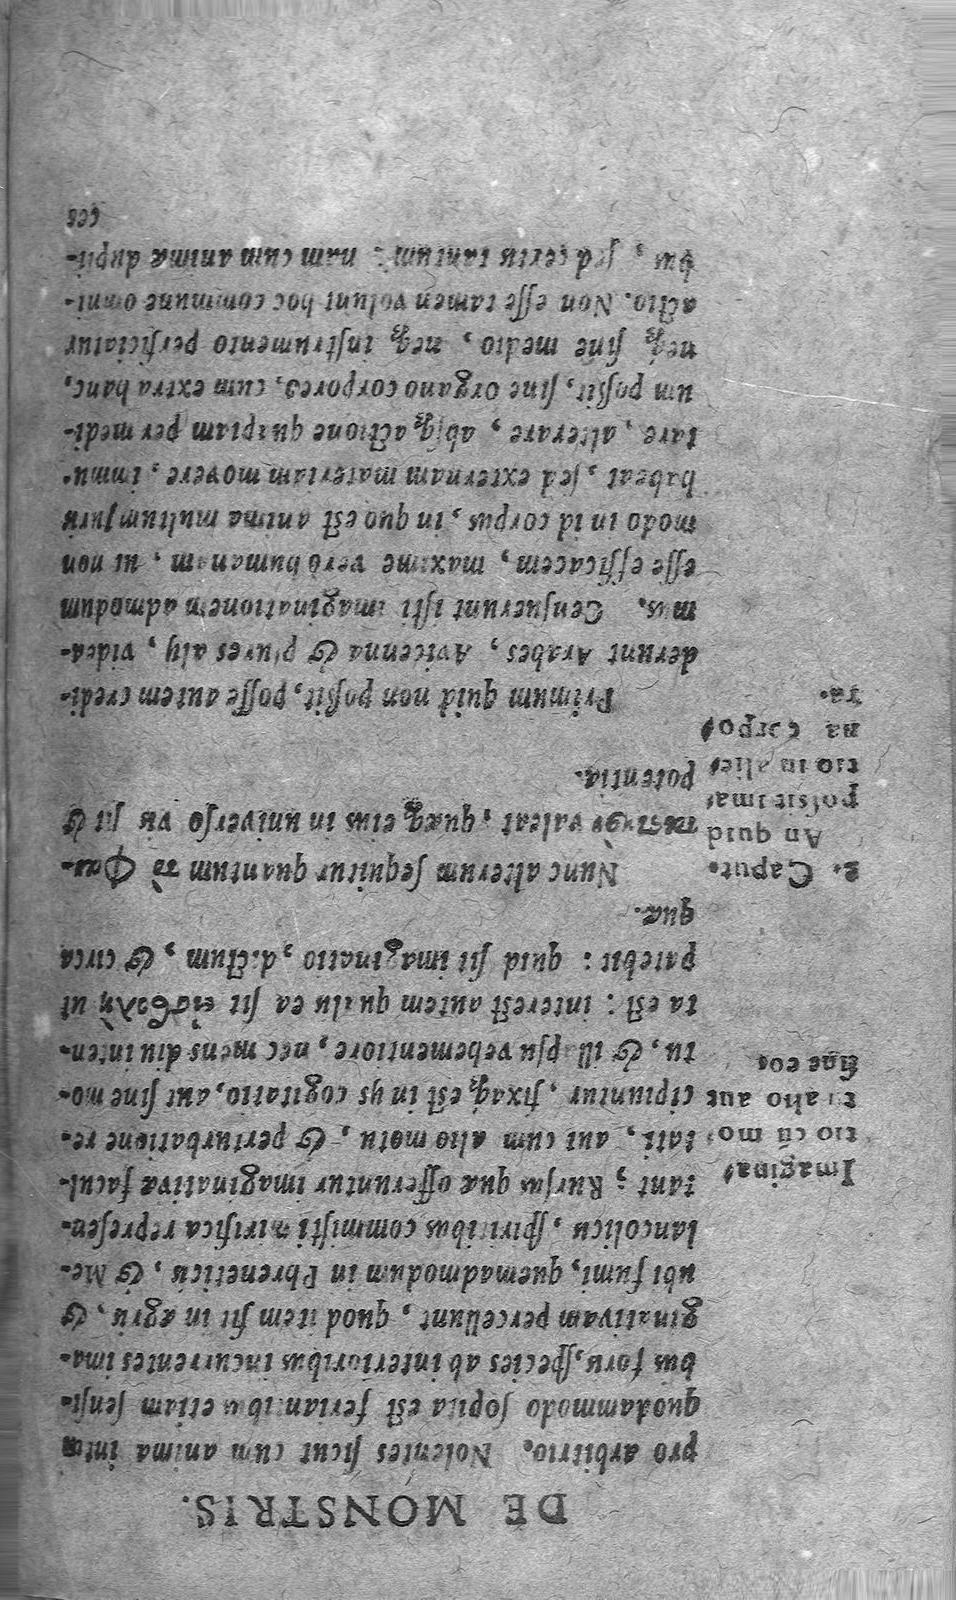 DE MONSTRIS.
pro arbitrio. Nolentes ſicut cum anima intus
quodammodo ſopita est feriantibus etiam ſenſi-
bus foris, ſpecies ab interioribus incurrentes ima-
ginativam percellunt, quod item fit in ægris, &
ubi fumi, quemadmodum in Phreneticis, & Me-
lancolicis, ſpiritibus commiſti mirifica repreſen-
tant; Rurſus quæ offeruntur imaginativæ facul-
tati, aut cum alio motu, & perturbatione re-
cipiuntur, fixaq́; est in ijs cogitatio, aut ſine mo-
tu, & illapſu vehementiore, nec mens diu inten-
ta est: interest autem qualis ea ſit εἰσβολὴ ut
patebit: quid ſit imaginatio, dictum, & circa
quæ.
Nunc alterum ſequitur quantum τὸ Φαν-
valeat, quæq; eius in univerſo vis ſit &
potentia.
Primum quid non poßit, poſſe autem credi-
derunt Arabes, Avicenna & plures alij, videa-
mus. Cenſuerunt iſti imaginationem admodum
eſſe efficacem, maxime verò humanam, ut non
modo in id corpus, in quo est anima multum juris
habeat, ſed externam materiam movere, immu-
tare, alterare, abſq; actione quapiam per medi-
um poßit, ſine organo corporeo, cum extra hanc,
neq́; ſine medio, neq; inſtrumento perficiatur
actio. Non eſſe tamen volunt hoc commune omni-
bus, ſed certis tantum: nam cum animæ dupli-
ces
Imagina-
tio cū mo-
tu alio aut
ſine eo.
2. Caput.
An quid
poſsit ima-
tio in alie-
na corpo-
ra.